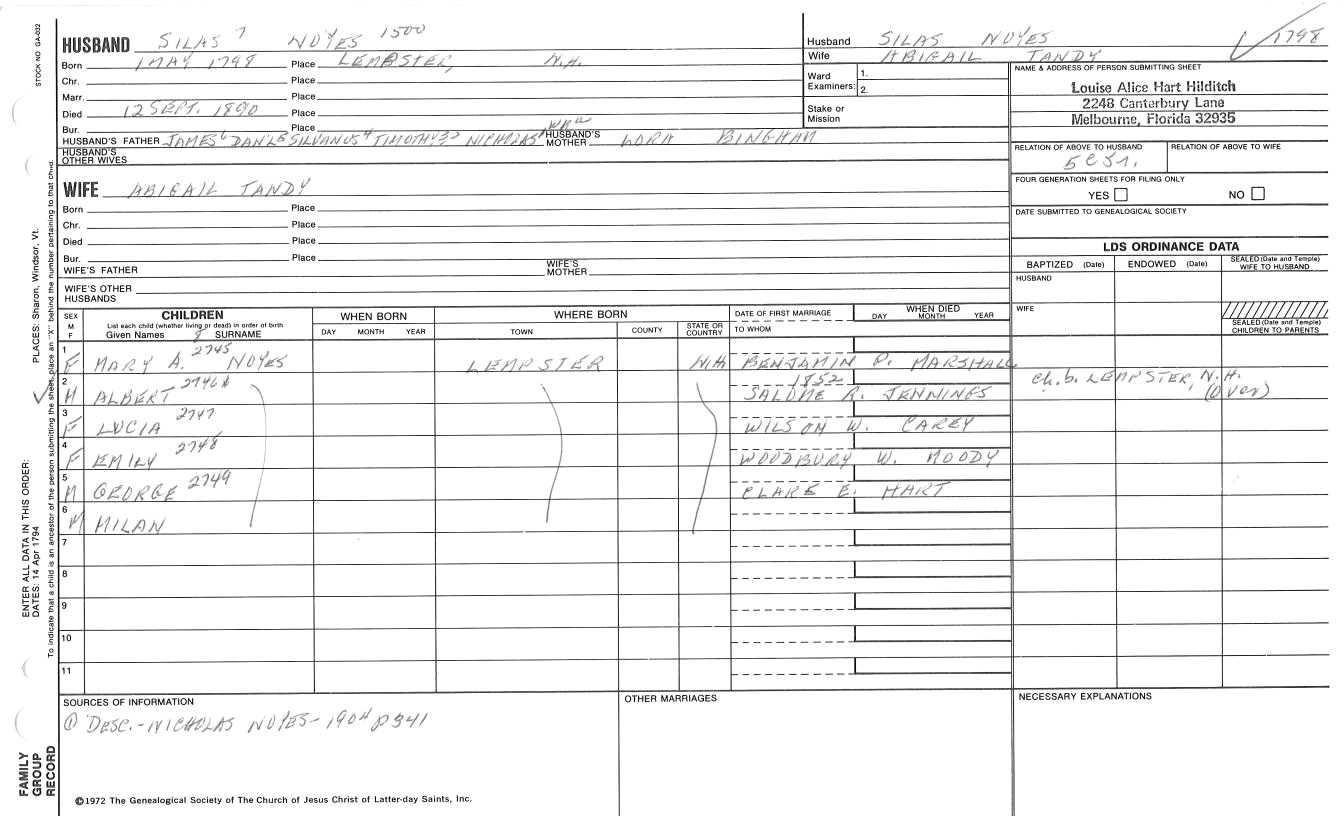 STOCK NO GA-032
HUSBAND SILAS 7 NOYES 1500
Born 1 MAY 1798 Place LEMPSTER, N.H.
Chr. Place
Marr. Place
Died 12 SEPT. 1890 Place
Bur. Place
HUSBAND'S FATHER JAMES 6 DAN'L 5 SILVANUS 4 TIMOTHY 3 2 NICHOLAS 1 WM HUSBAND'S MOTHER LORA BINGHAM
HUSBAND'S OTHER WIVES
WIFE ABIGAIL TANDY
Born Place
Chr. Place
Died Place
Bur. Place
WIFE'S FATHER WIFE'S MOTHER
WIFE'S OTHER HUSBANDS
Husband SILAS NOYES 1798
Wife ABIGAIL TANDY
Ward Examiners: 1.
2.
Stake or Mission
NAME & ADDRESS OF PERSON SUBMITTING SHEET
Louise Alice Hart Hilditch
2248 Canterbury Lane
Melbourne, Florida 32935
RELATION OF ABOVE TO HUSBAND RELATION OF ABOVE TO WIFE
5C5r.
FOUR GENERATION SHEETS FOR FILING ONLY
YES NO
DATE SUBMITTED TO GENEALOGICAL SOCIETY
LDS ORDINANCE DATA
BAPTIZED (Date) ENDOWED (Date) SEALED (Date and Temple) WIFE TO HUSBAND
HUSBAND
WIFE
SEALED (Date and Temple) CHILDREN TO PARENTS
SEX M F
CHILDREN
List each child (whether living or dead) in order of birth
Given Names 8 SURNAME
WHEN BORN
DAY MONTH YEAR
WHERE BORN
TOWN COUNTY STATE OR COUNTRY
DATE OF FIRST MARRIAGE
TO WHOM
WHEN DIED
DAY MONTH YEAR
1 F MARY A. 2745 NOYES LEMPSTER N.H. BENJAMIN P. MARSHALL
2 M ALBERT 2746 1852 SALOME R. JENNINGS ch. b. LEMPSTER, N.H. (over)
3 F LUCIA 2747 WILSON W. CAREY
4 F EMILY 2748 WOODBURY W. MOODY
5 M GEORGE 2749 CLARE E. HART
6 M MILAN
7
8
9
10
11
SOURCES OF INFORMATION
① DESC.-NICHOLAS NOYES-1904 p341
OTHER MARRIAGES
NECESSARY EXPLANATIONS
©1972 The Genealogical Society of The Church of Jesus Christ of Latter-day Saints, Inc.
PLACES: Sharon, Windsor, Vt.
ENTER ALL DATA IN THIS ORDER:
DATES: 14 Apr 1794
To indicate that a child is an ancestor of the person submitting the sheet, place an "X" behind the number pertaining to that child.
FAMILY GROUP RECORD